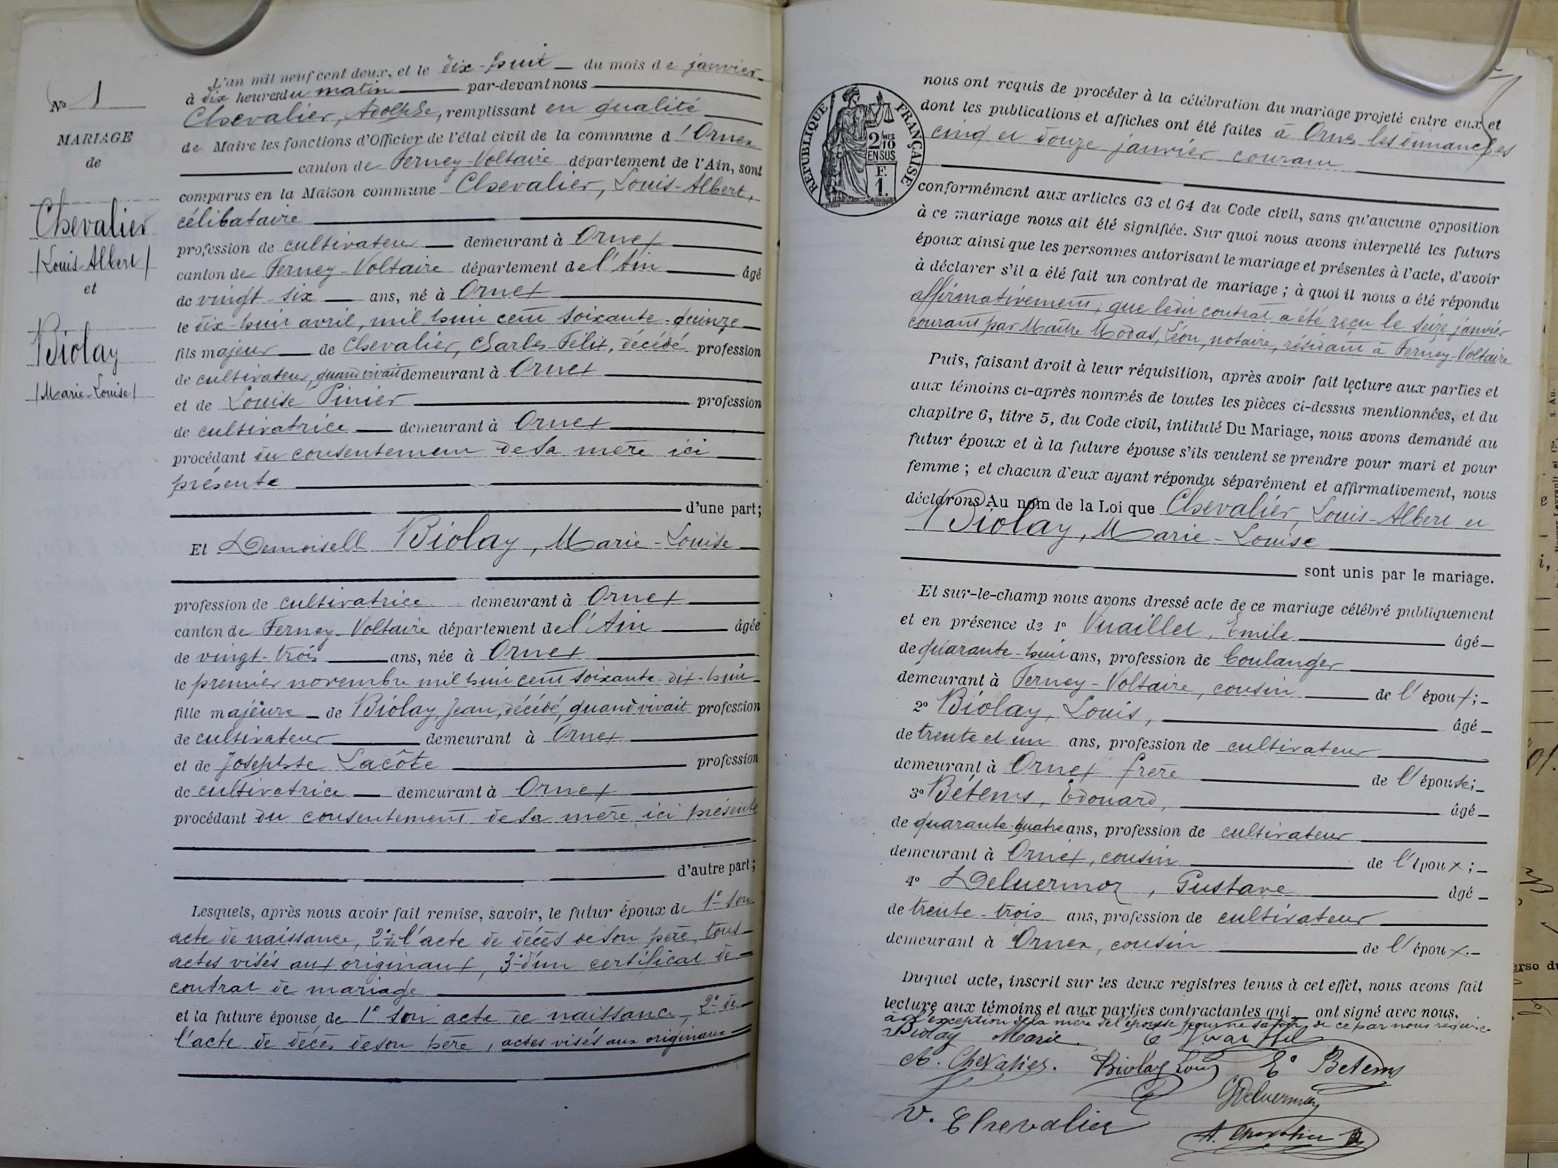 No 1
MARIAGE
de
Chevalier
/Louis Albert/
et
Biolay
/Marie-Louise/
L'an mil neuf cent deux, et le dix-huit du mois de janvier
à dix heures du matin par-devant nous
Chevalier, Adolphe, remplissant en qualité
de Maire les fonctions d'Officier de l'état civil de la commune d'Ornex
canton de Ferney-Voltaire département de l'Ain, sont
comparus en la Maison commune Chevalier, Louis-Albert,
célibataire
profession de cultivateur demeurant à Ornex
canton de Ferney-Voltaire département de l'Ain âgé
de vingt-six ans, né à Ornex
le dix-huit avril, mil huit cent soixante-quinze
fils majeur de Chevalier, Charles-Félix, décédé profession
de cultivateur, quand vivait demeurant à Ornex
et de Louise Pinier profession
de cultivatrice demeurant à Ornex
procédant du consentement de sa mère ici
présente
d'une part;
Et Demoiselle Biolay, Marie-Louise
profession de cultivatrice demeurant à Ornex
canton de Ferney-Voltaire département de l'Ain âgée
de vingt-trois ans, née à Ornex
le premier novembre mil huit cent soixante-dix-huit
fille majeure de Biolay Jean, décédé, quand vivait profession
de cultivateur demeurant à Ornex
et de Josephte Lacôte profession
de cultivatrice demeurant à Ornex
procédant du consentement de sa mère ici présente
d'autre part;
Lesquels, après nous avoir fait remise, savoir, le futur époux de 1° son
acte de naissance, 2° de l'acte de décès de son père, tous
actes visés aux originaux, 3° d'un certificat de
contrat de mariage
et la future épouse de 1° son acte de naissance, 2° de
l'acte de décès de son père, actes visés aux originaux
RÉPUBLIQUE FRANÇAISE
nous ont requis de procéder à la célébration du mariage projeté entre eux et
dont les publications et affiches ont été faites à Ornex les dimanches
cinq et douze janvier courant
conformément aux articles 63 et 64 du Code civil, sans qu'aucune opposition
à ce mariage nous ait été signifiée. Sur quoi nous avons interpellé les futurs
époux ainsi que les personnes autorisant le mariage et présentes à l'acte, d'avoir
à déclarer s'il a été fait un contrat de mariage ; à quoi il nous a été répondu
affirmativement, que ledit contrat a été reçu le seize janvier
courant par Maître Modas, Léon, notaire, résidant à Ferney-Voltaire
Puis, faisant droit à leur réquisition, après avoir fait lecture aux parties et
aux témoins ci-après nommés de toutes les pièces ci-dessus mentionnées, et du
chapitre 6, titre 5, du Code civil, intitulé Du Mariage, nous avons demandé au
futur époux et à la future épouse s'ils veulent se prendre pour mari et pour
femme ; et chacun d'eux ayant répondu séparément et affirmativement, nous
déclarons Au nom de la Loi que Chevalier, Louis-Albert et
Biolay, Marie-Louise
sont unis par le mariage.
Et sur-le-champ nous avons dressé acte de ce mariage célébré publiquement
et en présence de 1° Vuaillet, Emile âgé
de quarante-huit ans, profession de boulanger
demeurant à Ferney-Voltaire, cousin de l'époux;
2° Biolay, Louis, âgé
de trente et un ans, profession de cultivateur
demeurant à Ornex frère de l'épouse;
3° Bétems, Edouard, âgé
de quarante-quatre ans, profession de cultivateur
demeurant à Ornex, cousin de l'époux;
4° Deluermoz, Gustave âgé
de trente-trois ans, profession de cultivateur
demeurant à Ornex, cousin de l'époux.
Duquel acte, inscrit sur les deux registres tenus à cet effet, nous avons fait
lecture aux témoins et aux parties contractantes qui ont signé avec nous,
à l'exception de la mère de l'épouse pour ne savoir de ce par nous requise
Biolay Marie
A. Chevalier. Biolay Louis E. Betems
G Deluermoz
V. Chevalier A. Chevalier